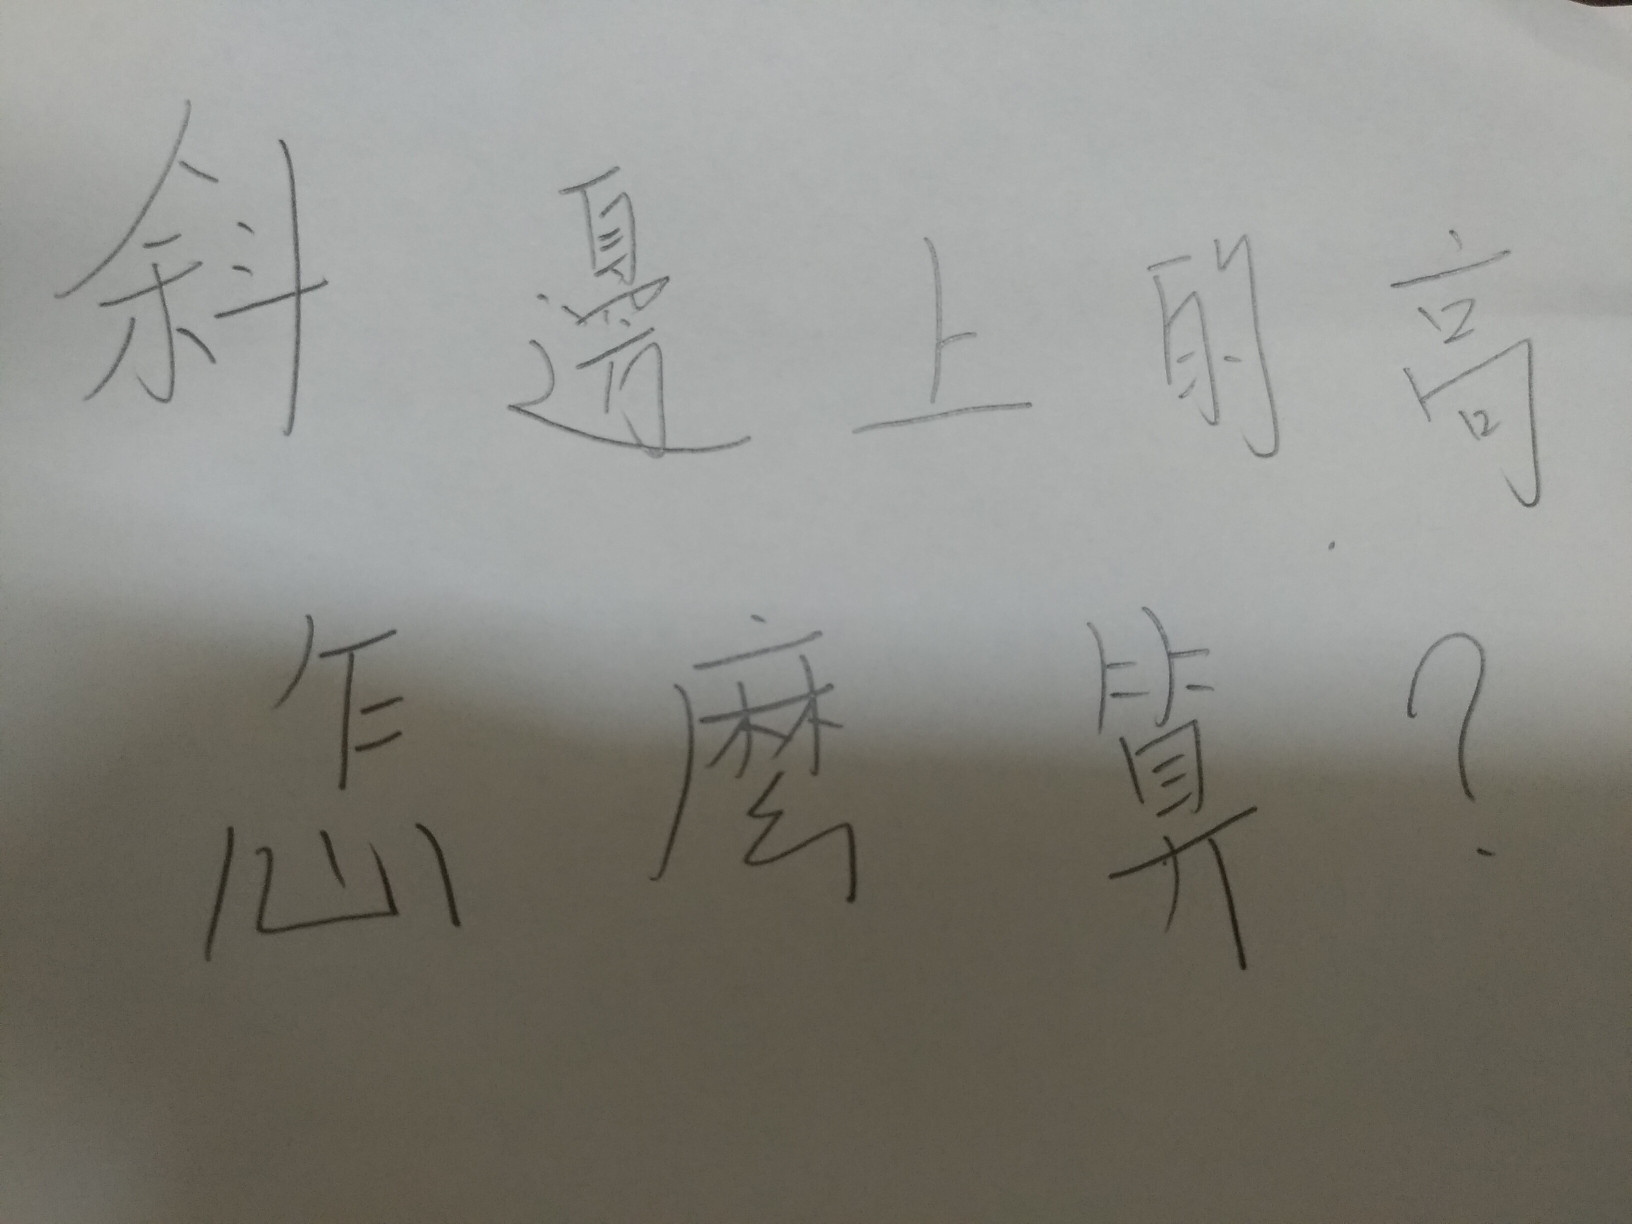 斜邊上的高
怎麼算?